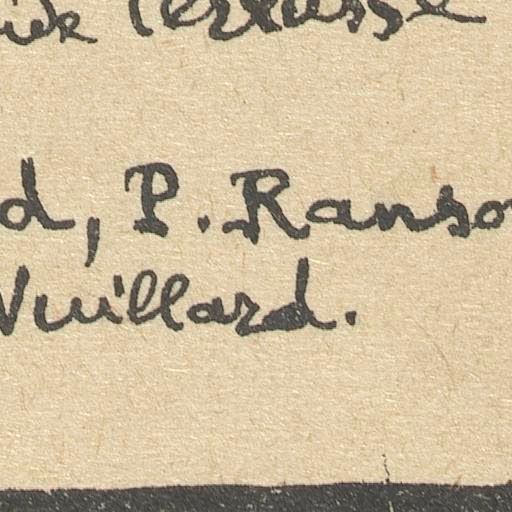 Terrasse
d, P. Ranso
Vuillard.